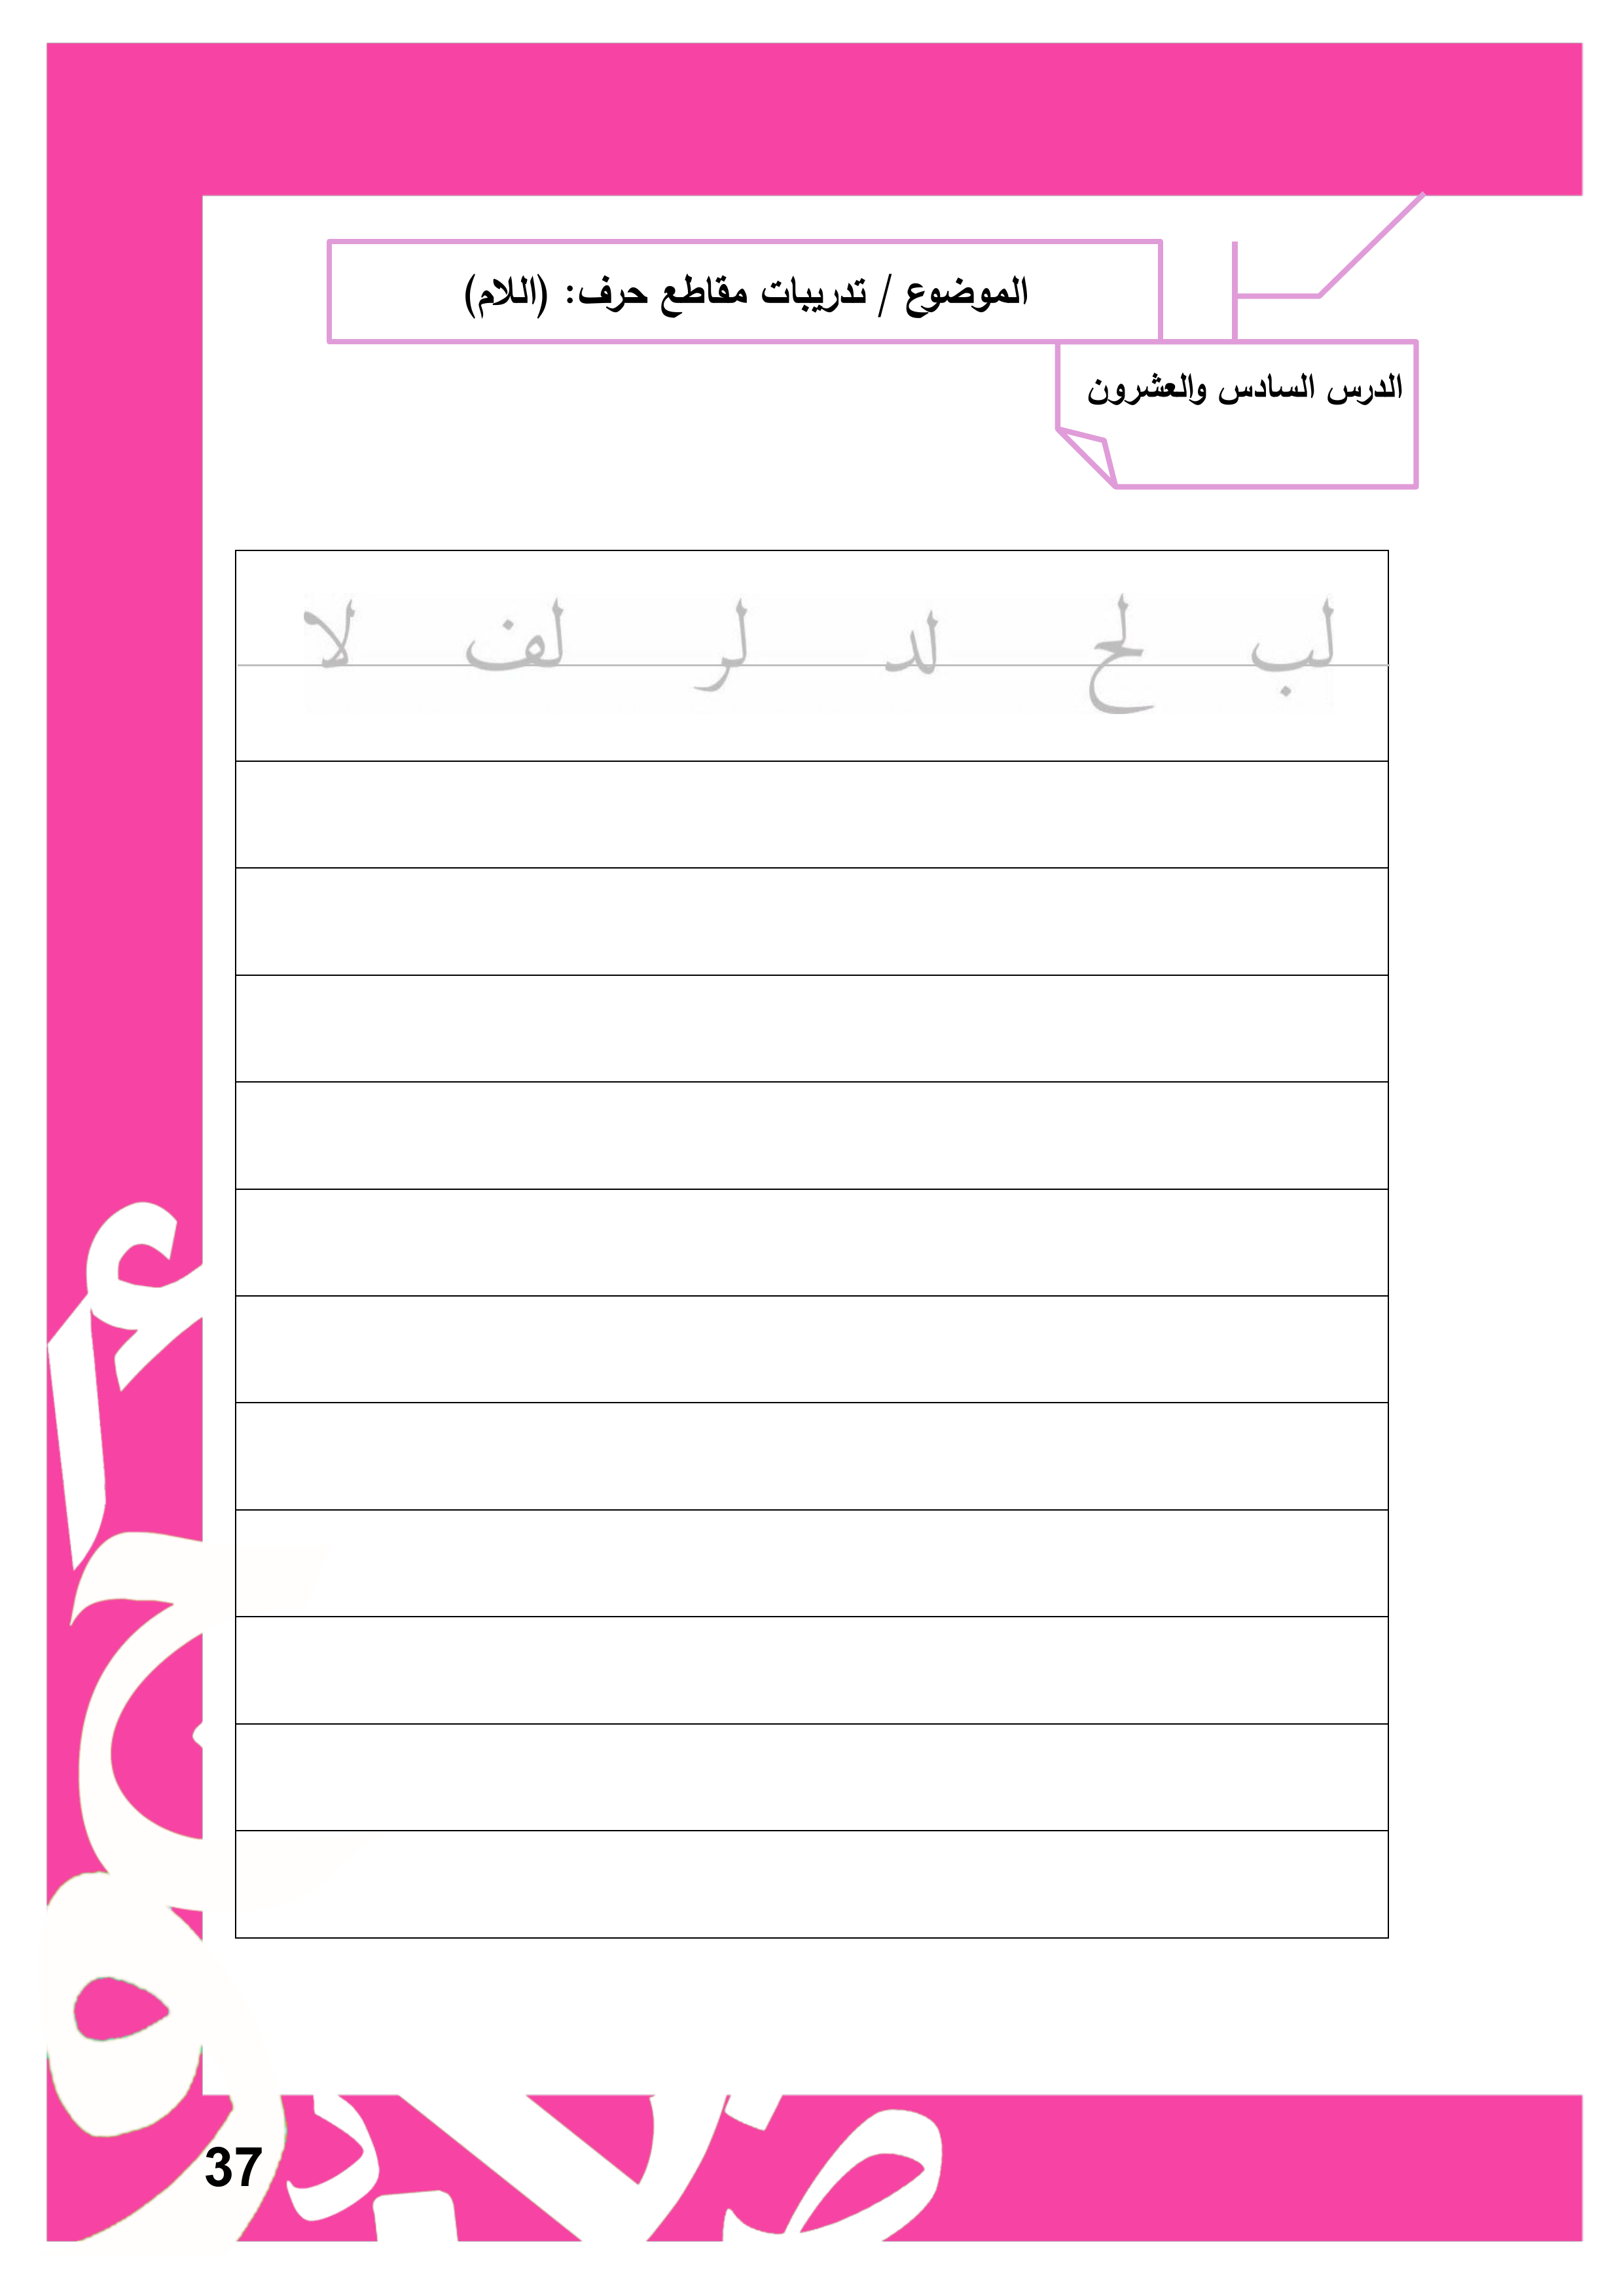 الموضوع / تدريبات مقاطع حرف: (اللام)
الدرس السادس والعشرون
لب لح لد لر لف لا
37